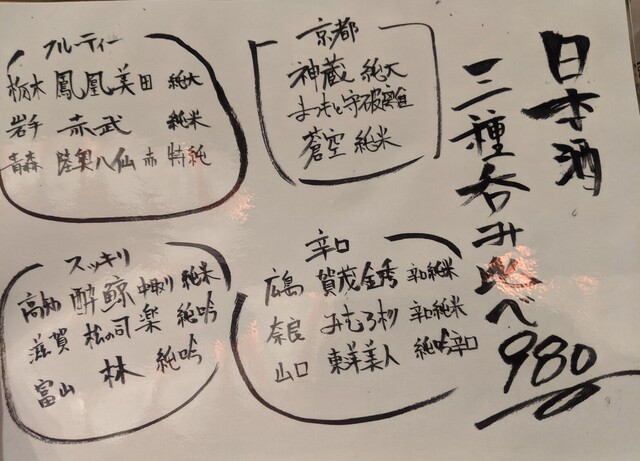 日本酒
三種呑み比べ
980
京都
神蔵 純大
まつもと守破離
蒼空 純米
フルーティー
栃木 鳳凰美田 純大
岩手 赤武 純米
青森 陸奥八仙 赤 特純
辛口
広島 賀茂金秀 辛純米
奈良 みむろ杉 辛純米
山口 東洋美人 純吟辛口
スッキリ
高知 酔鯨 中取り 純米
滋賀 松の司 楽 純吟
富山 林 純吟